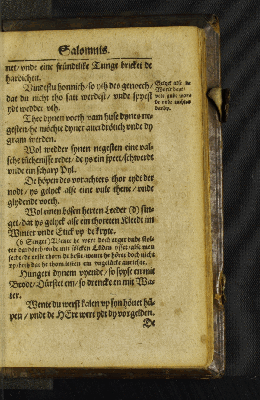 Salomnis.
net/ vnde eine fründtlike Tunge bricket de
hardicheit.
Vindestu honnich/ so yth des genoech/
dat du nicht tho satt werdest/ vnde spyest
ydt wedder vth.
Thee dynen voeth vam huse dynes ne-
gesten/he möchte dyner auerdrötich vnde dy
gram werden.
Wol wedder synen negesten eine val-
sche tüchenisse redet/ de ys ein speet/schwerdt
vnde ein scharp Pyl.
De hapen des vorachters thor tydt der
nodt/ ys gelyck alse eine vule thene/ vnde
glydende voeth.
Wol einem bösen herten Leeder (b) sin-
get/dat ys gelyck alse ein thoreten Kleedt im
Winter vnde Etick vp de kryte.
(b Singet)
Hungert dynem vyende/ so spyse en mit
Brode/ Dörstet em/ so drencke en mit Wa-
ter.
Wente du werst kalen vp syn höuet hü-
pen/ vnde de HEre wert ydt dy vorgelden.
De